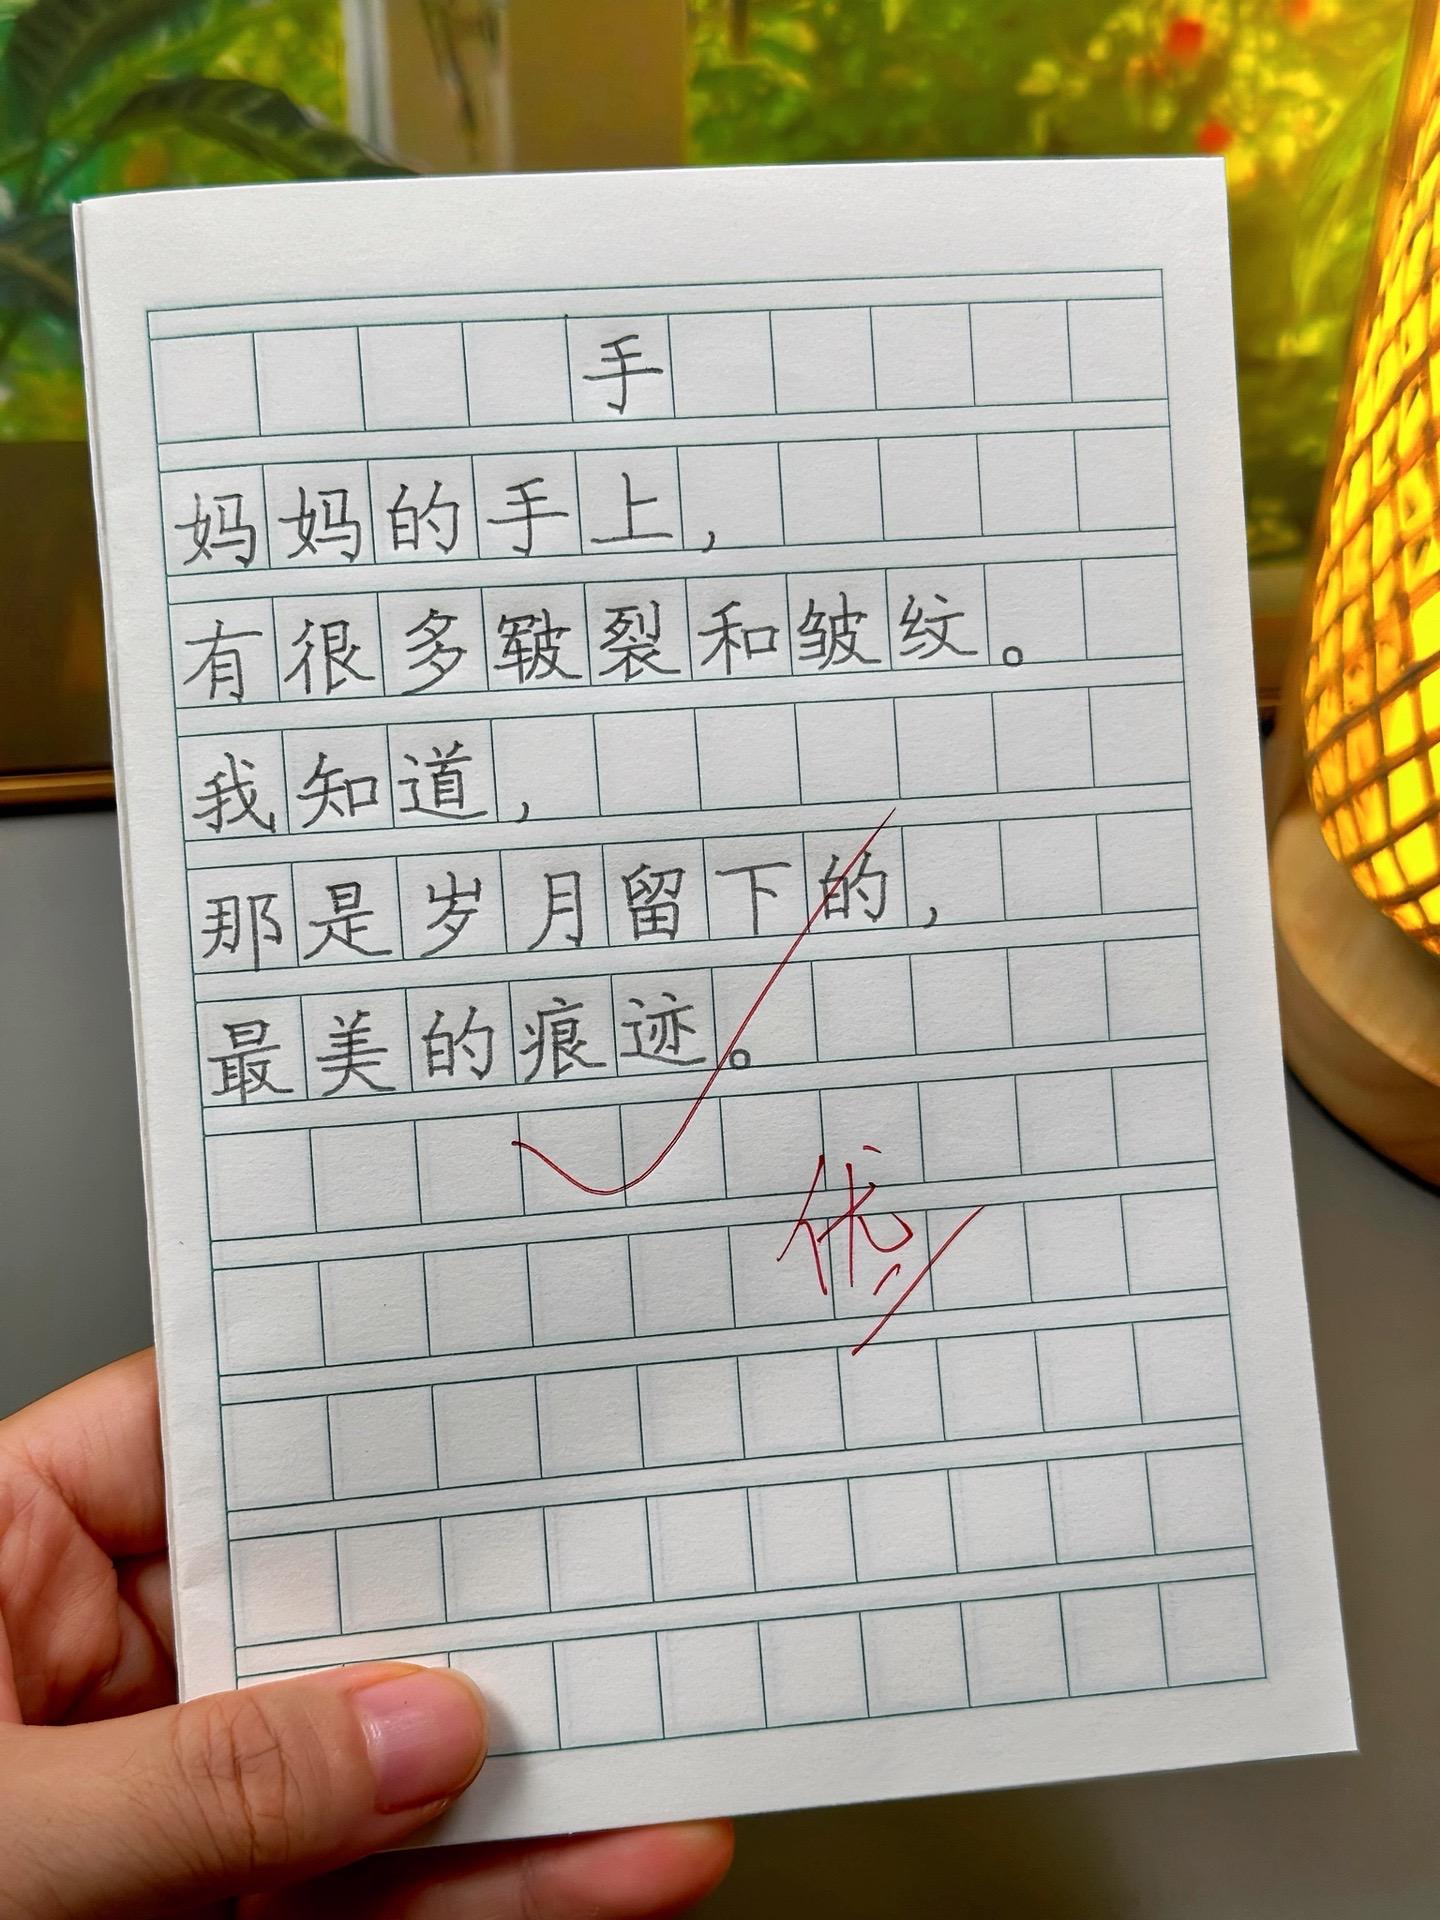 手
妈妈的手上，
有很多皲裂和皱纹。
我知道，
那是岁月留下的，
最美的痕迹。
优